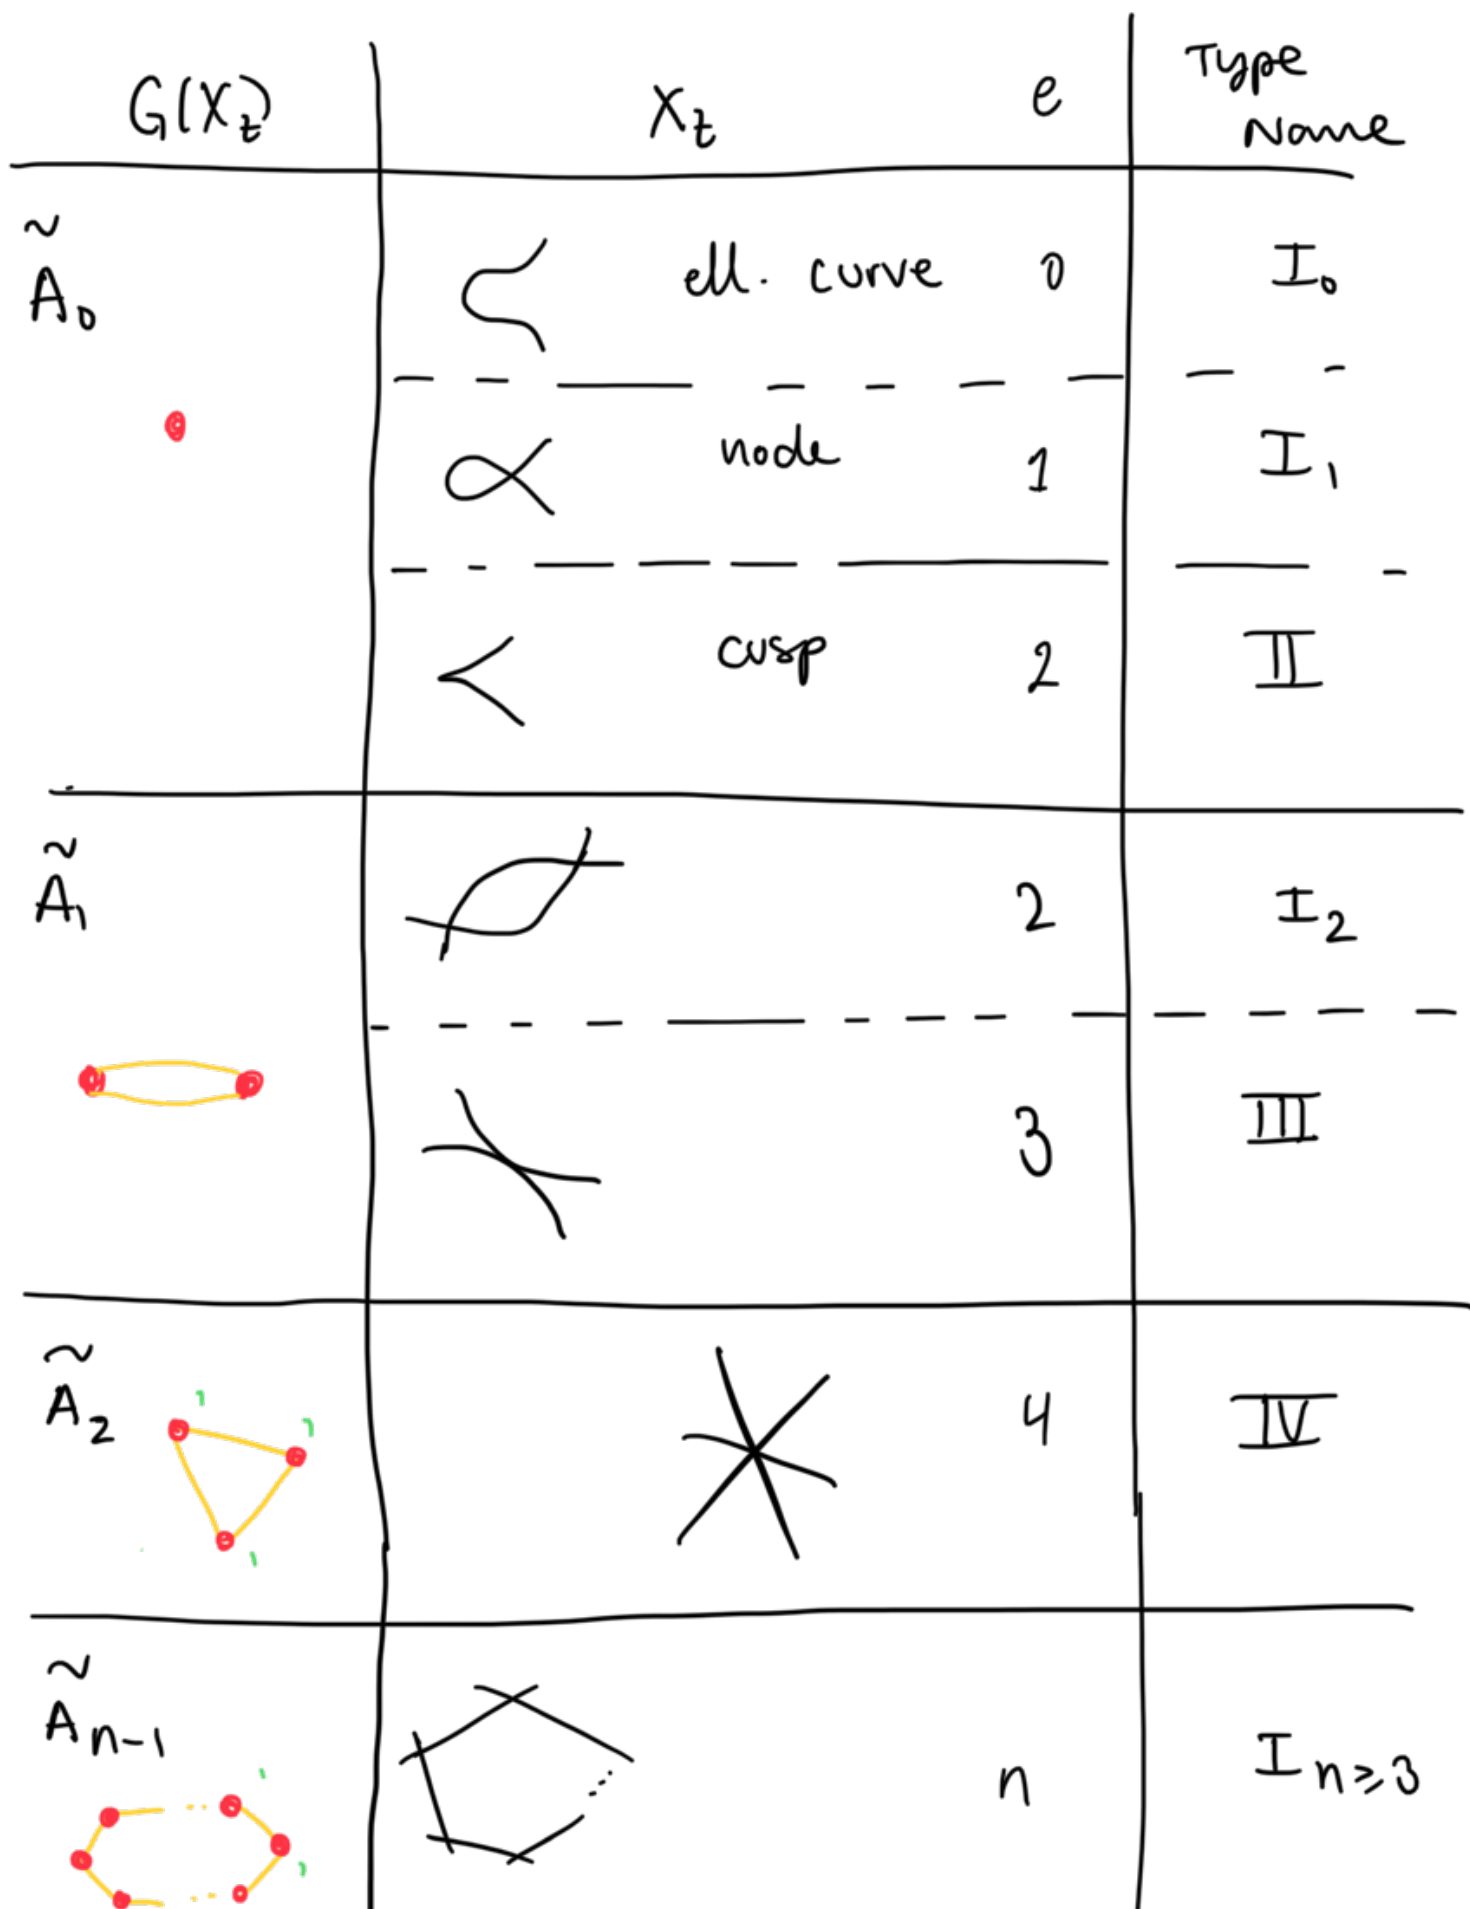 G(X_t) X_t e Type Name
Ã_0 ell. curve 0 I_0
node 1 I_1
cusp 2 II
Ã_1 2 I_2
3 III
Ã_2 1 1 1 4 IV
Ã_{n-1} 1 1 n I_{n≥3}